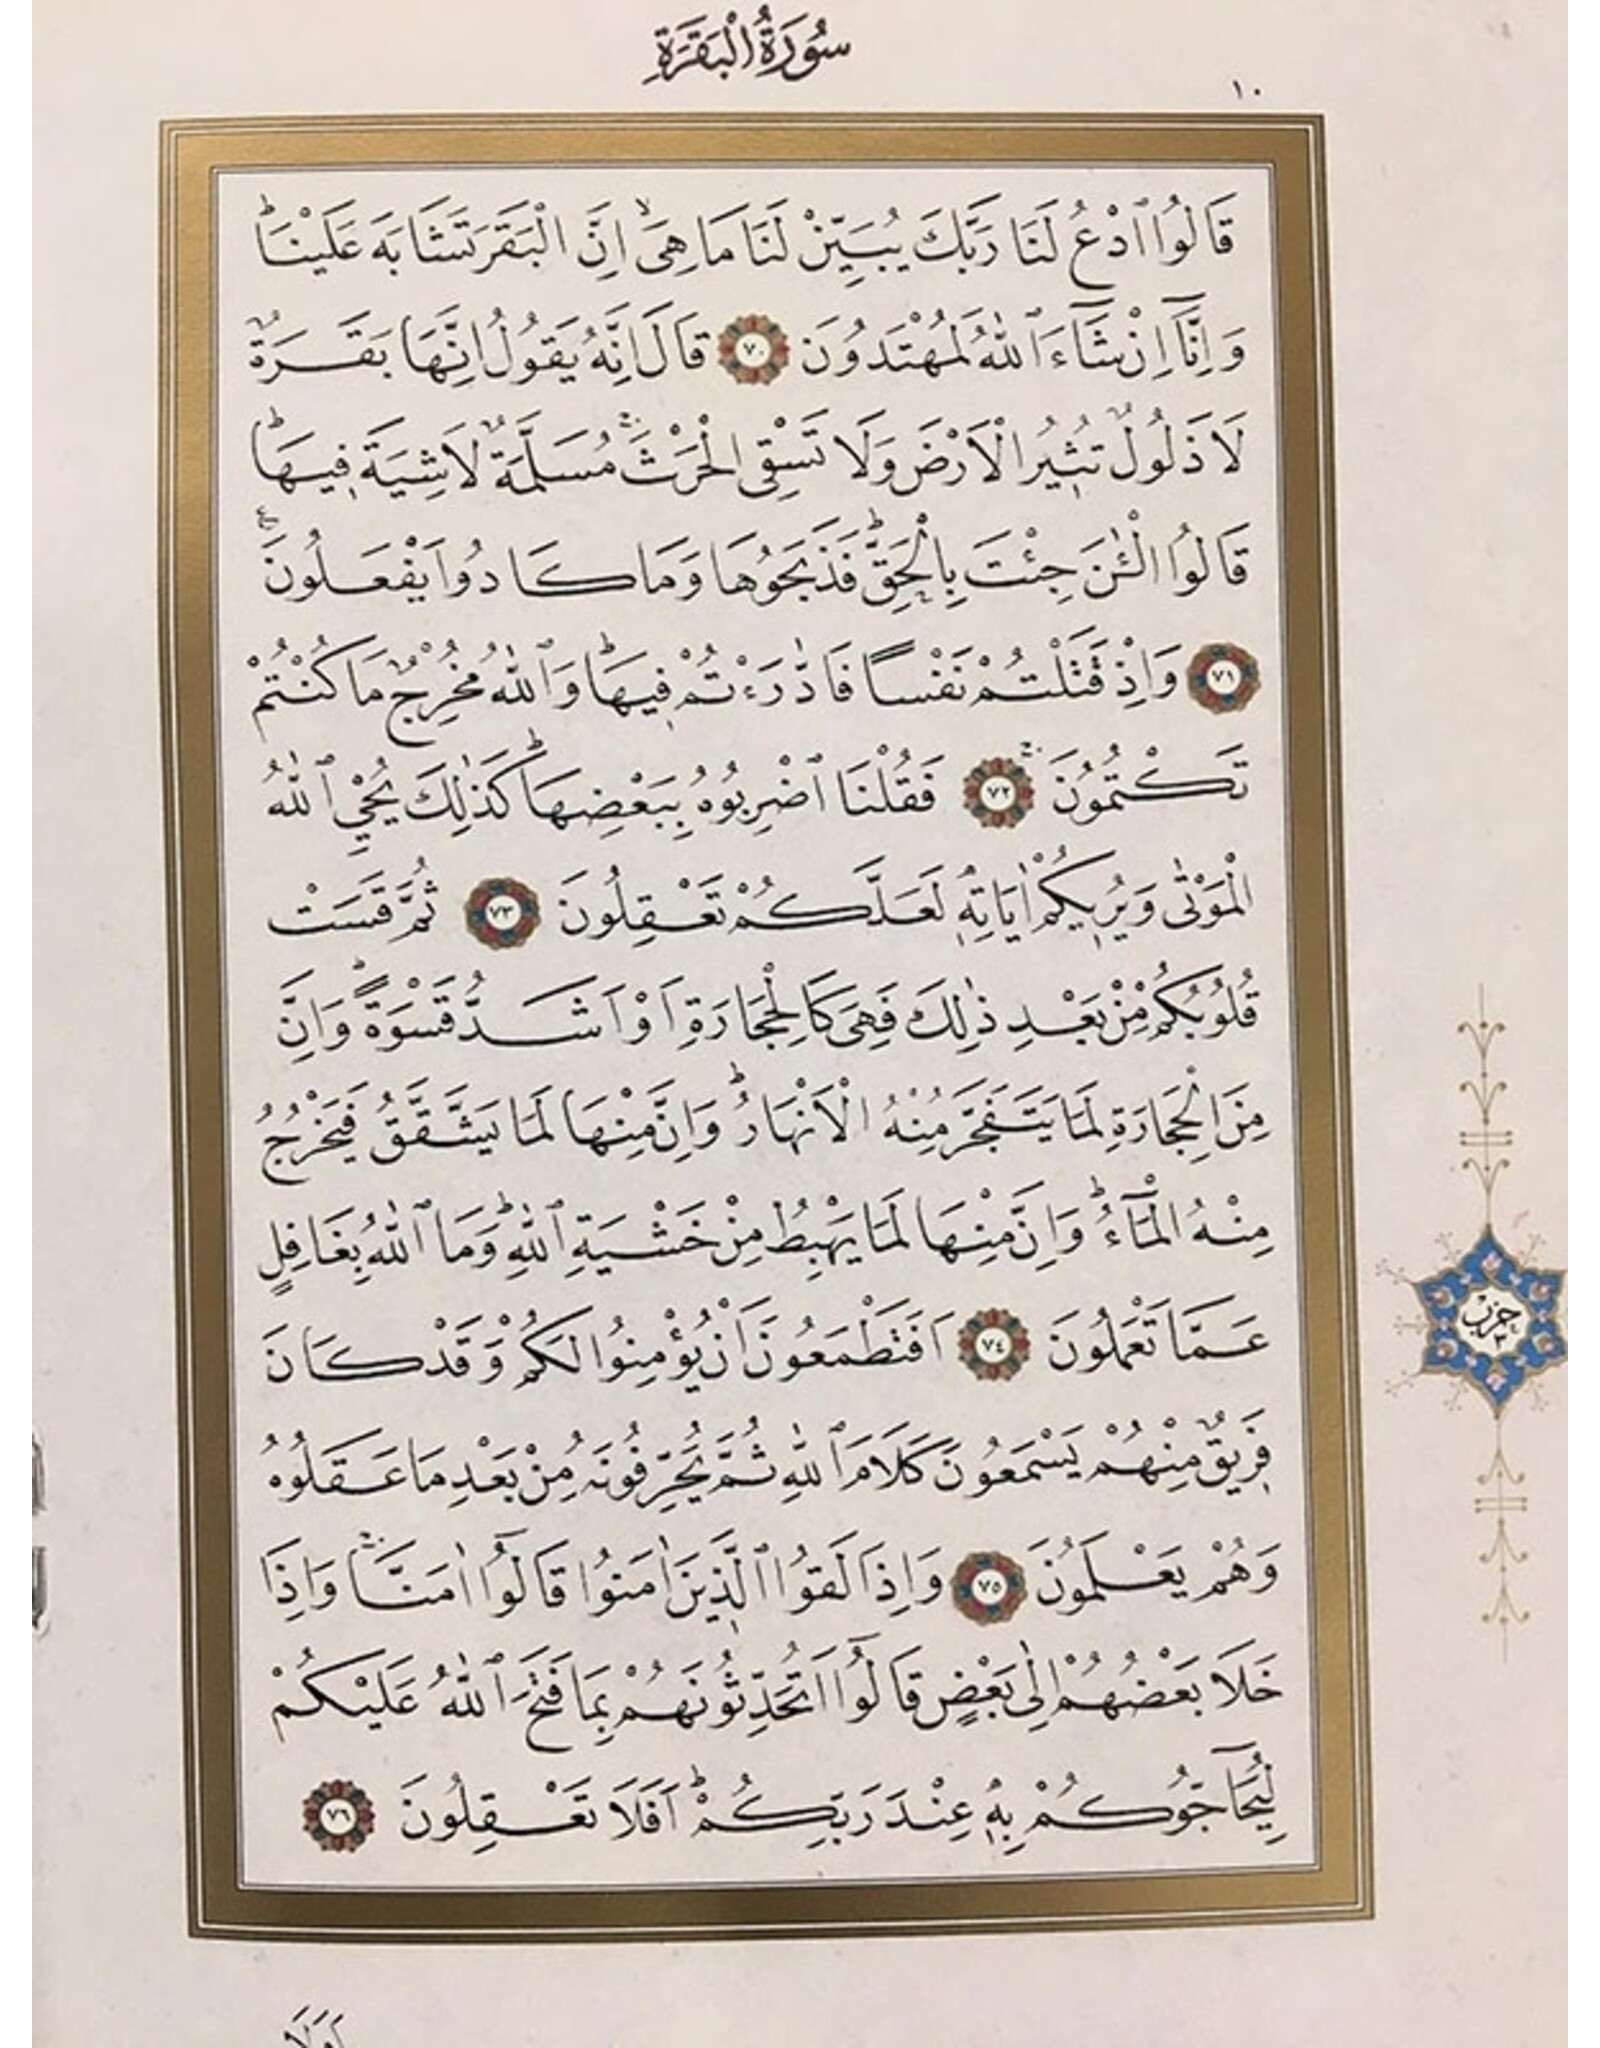 سُورَةُ الْبَقَرَةِ
١٠
قَالُوا ادْعُ لَنَا رَبَّكَ يُبَيِّنْ لَنَا مَا هِيَۙ اِنَّ الْبَقَرَ تَشَابَهَ عَلَيْنَاۜ
وَاِنَّٓا اِنْ شَٓاءَ اللّٰهُ لَمُهْتَدُونَ ٧٠ قَالَ اِنَّهُ يَقُولُ اِنَّهَا بَقَرَةٌ
لَا ذَلُولٌ تُثِيرُ الْاَرْضَ وَلَا تَسْقِى الْحَرْثَۚ مُسَلَّمَةٌ لَا شِيَةَ فِيهَاۜ
قَالُوا الْـٰٔنَ جِئْتَ بِالْحَقِّۜ فَذَبَحُوهَا وَمَا كَادُوا يَفْعَلُونَ۟
٧١ وَاِذْ قَتَلْتُمْ نَفْسًا فَادّٰرَءْتُمْ فِيهَاۜ وَاللّٰهُ مُخْرِجٌ مَا كُنْتُمْ
تَكْتُمُونَۚ ٧٢ فَقُلْنَا اضْرِبُوهُ بِبَعْضِهَاۜ كَذٰلِكَ يُحْيِ اللّٰهُ
الْمَوْتٰى وَيُرِيكُمْ اٰيَاتِهٖ لَعَلَّكُمْ تَعْقِلُونَ ٧٣ ثُمَّ قَسَتْ
قُلُوبُكُمْ مِنْ بَعْدِ ذٰلِكَ فَهِيَ كَالْحِجَارَةِ اَوْ اَشَدُّ قَسْوَةًۜ وَاِنَّ
مِنَ الْحِجَارَةِ لَمَا يَتَفَجَّرُ مِنْهُ الْاَنْهَارُۜ وَاِنَّ مِنْهَا لَمَا يَشَّقَّقُ فَيَخْرُجُ
مِنْهُ الْمَٓاءُۜ وَاِنَّ مِنْهَا لَمَا يَهْبِطُ مِنْ خَشْيَةِ اللّٰهِۜ وَمَا اللّٰهُ بِغَافِلٍ
عَمَّا تَعْمَلُونَ ٧٤ اَفَتَطْمَعُونَ اَنْ يُؤْمِنُوا لَكُمْ وَقَدْ كَانَ
فَرِيقٌ مِنْهُمْ يَسْمَعُونَ كَلَامَ اللّٰهِ ثُمَّ يُحَرِّفُونَهُ مِنْ بَعْدِ مَا عَقَلُوهُ
وَهُمْ يَعْلَمُونَ ٧٥ وَاِذَا لَقُوا الَّذِينَ اٰمَنُوا قَالُٓوا اٰمَنَّاۚ وَاِذَا
خَلَا بَعْضُهُمْ اِلٰى بَعْضٍ قَالُٓوا اَتُحَدِّثُونَهُمْ بِمَا فَتَحَ اللّٰهُ عَلَيْكُمْ
لِيُحَٓاجُّوكُمْ بِهٖ عِنْدَ رَبِّكُمْۜ اَفَلَا تَعْقِلُونَ ٧٦
حزب
٣